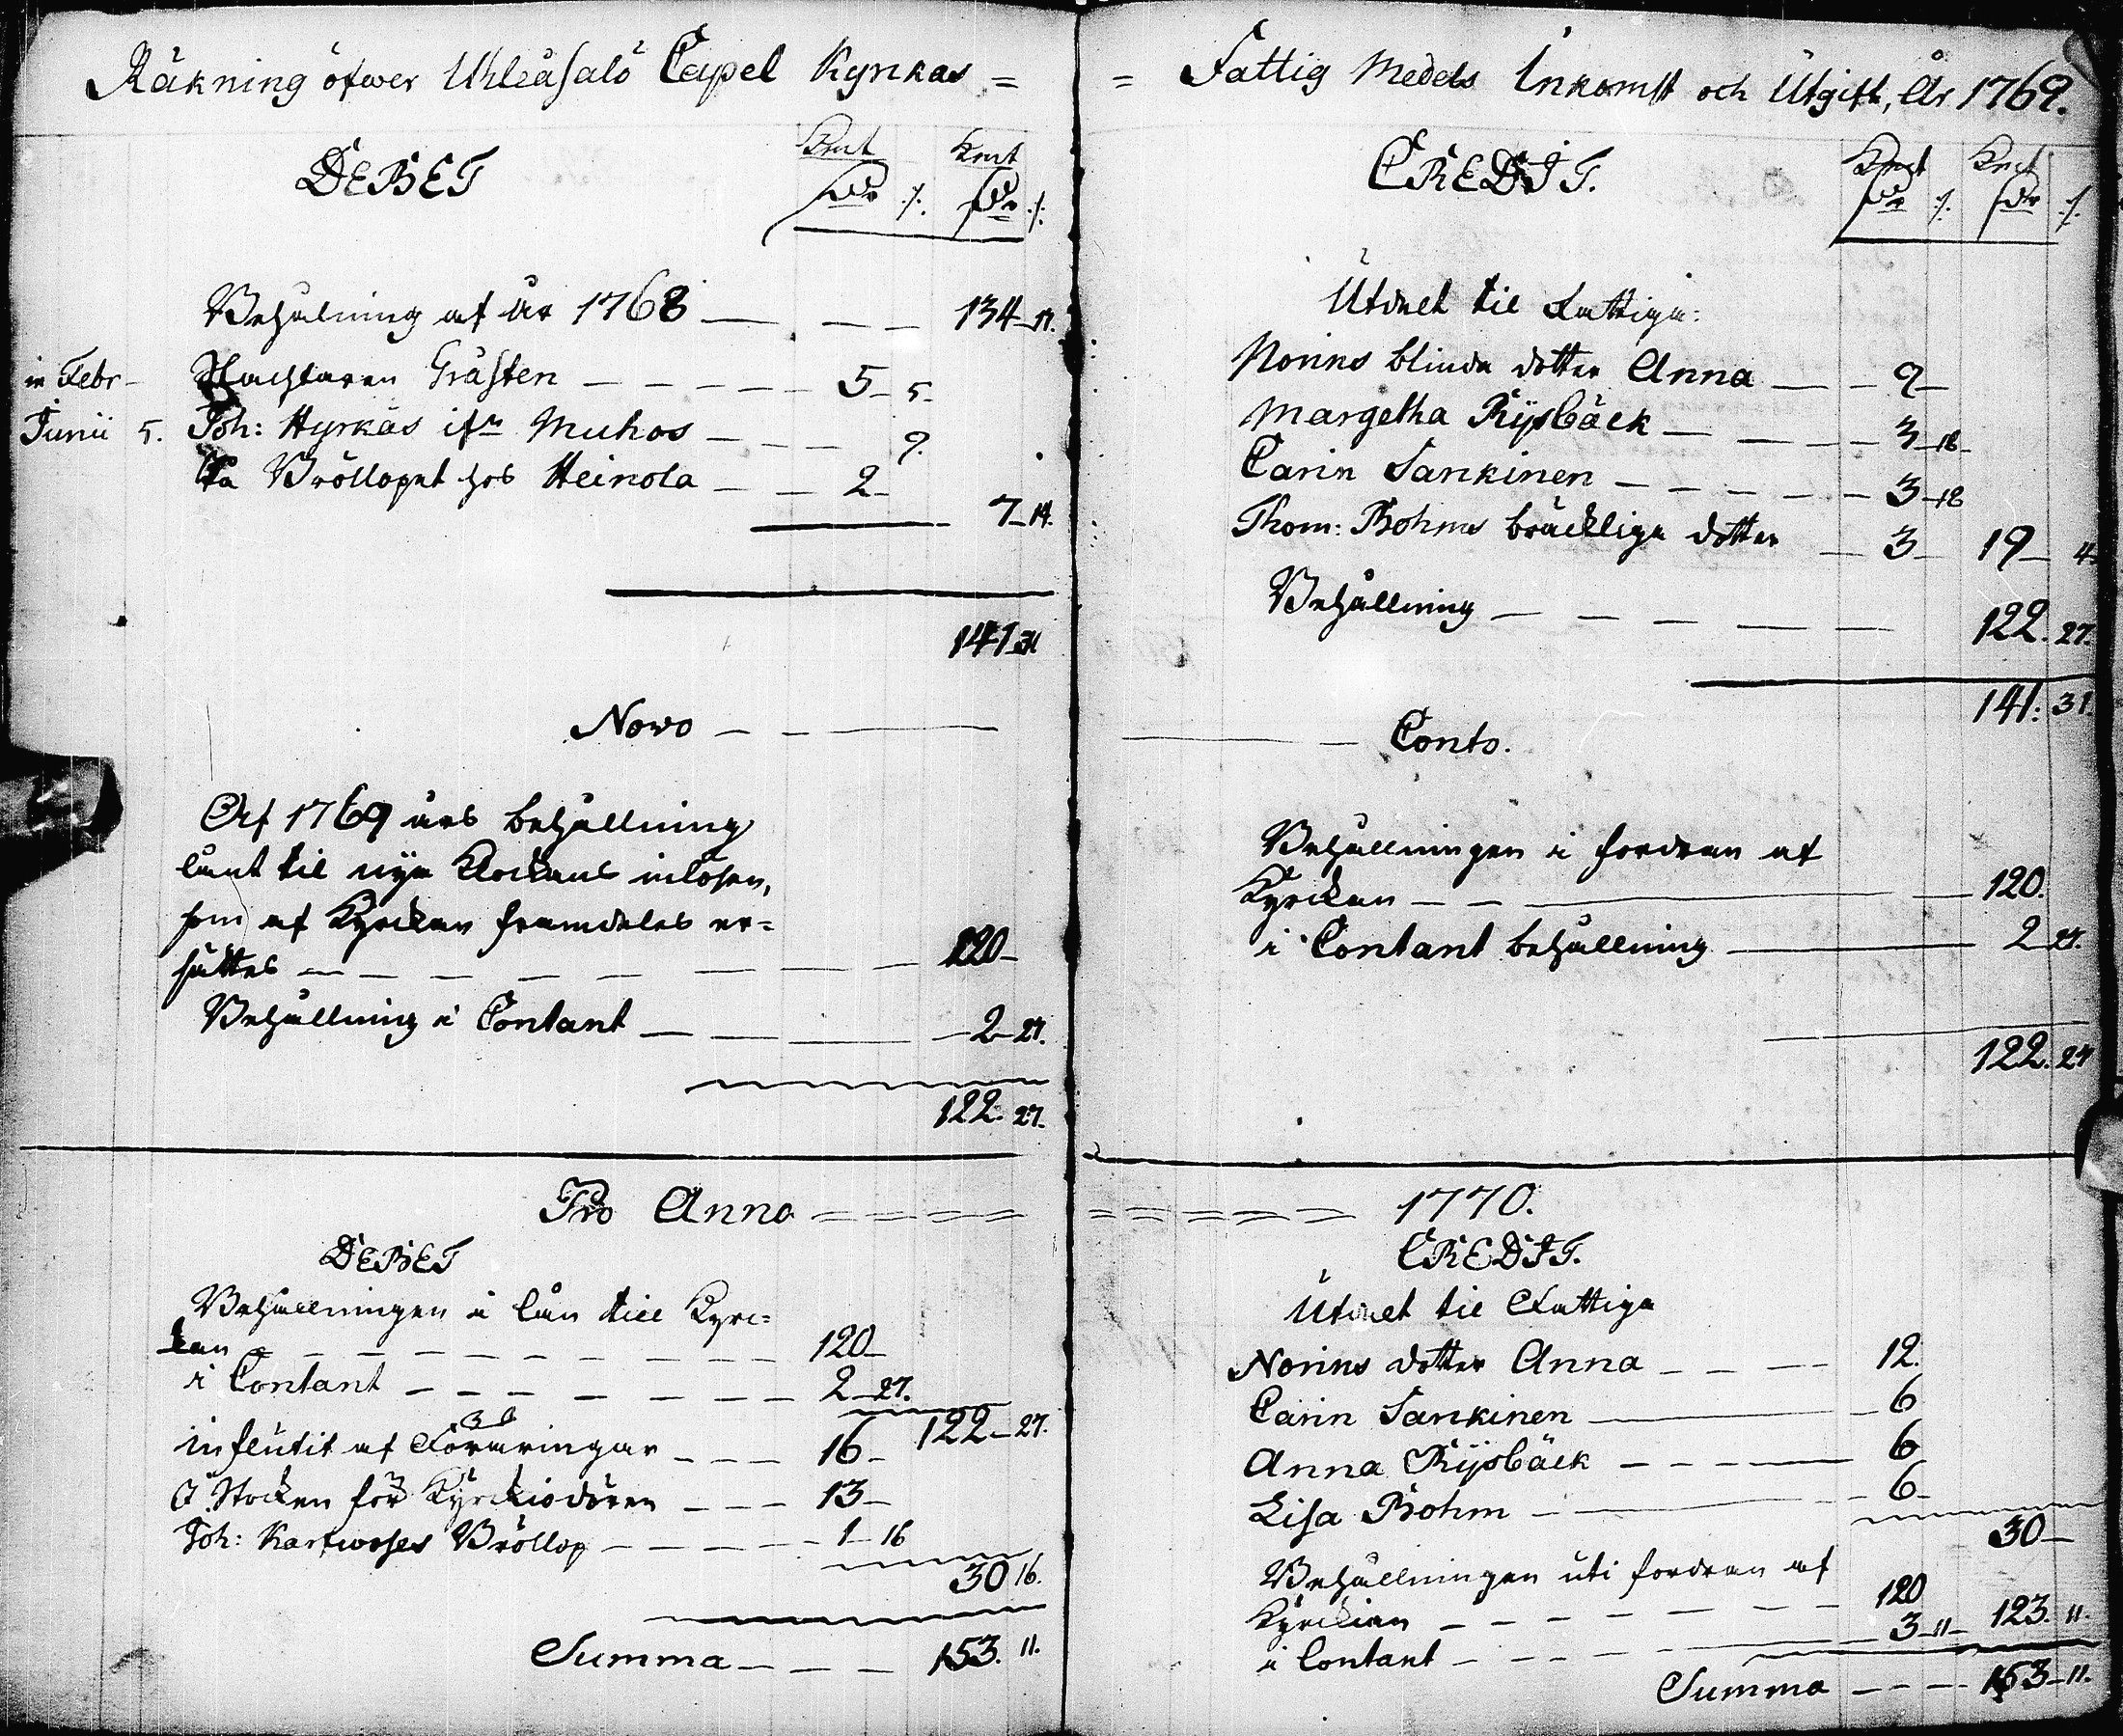 Räkning öfwer Uhleåsalo Capel Kyrkas =
DEBET
Kmt Kmt
dr ./. dr ./.
Behålning af År 1768 — — — 134 – 17.
in Febr – Gråsten — — — — 5 – 5 –
Junii 5. Joh: Hyrkäs ifn Muhos — — — 9.
Bröllopet hos Heinola — — 2 –
7 – 14.
141 – 31
Novo — — —
Af 1769 års behållning
lånt til nya Klockans inlösen,
som af Kyrckan framdeles er=
sättes — — — — — — — 120 –
Behållning i Contant — — — 2 – 27.
122. 27.
Pro Anno = = = =
DEBET
Behållningen i lån till Kyrc=
kan — — — — — — — 120 –
i Contant — — — — — — 2 – 27.
122 – 27.
influtit af Föräringar — — — 16 –
Stocken för Kyrckiodören — — — 13 –
Joh: Bröllop — — — — 1 – 16
30 16.
Summa — — — 153. 11.
= Fattig Medels Inkomst och Utgift, År 1769.
CREDIT.
Kmt Kmt
dr ./. dr ./.
Utdelt til Fattiga:
Norins blinda dotter Anna — — 9 –
Margetha Rysbäck — — — 3 – 18 –
Carin Sankinen — — — — — 3 – 18
Thom: Bohms bräckliga dotter — 3 – 19 – 4
Behållning — — — — — 122. 27.
141. 31.
— — Conto.
Behållningen i fordran af
Kyrckan — — — — 120.
i Contant behållning — 2 – 27.
122. 27
= = = = = = 1770.
CREDIT.
Utdelt til Fattiga
Norins dotter Anna — — — 12.
Carin Sankinen — 6
Anna Rysbäck — — — — 6
Lisa Bohm — — 6 –
30 –
Behållningen uti fordran af
Kyrckian — — — — — — 120
i Contant — — — — 3 – 11 – 123. 11.
Summa — — — 153 – 11.